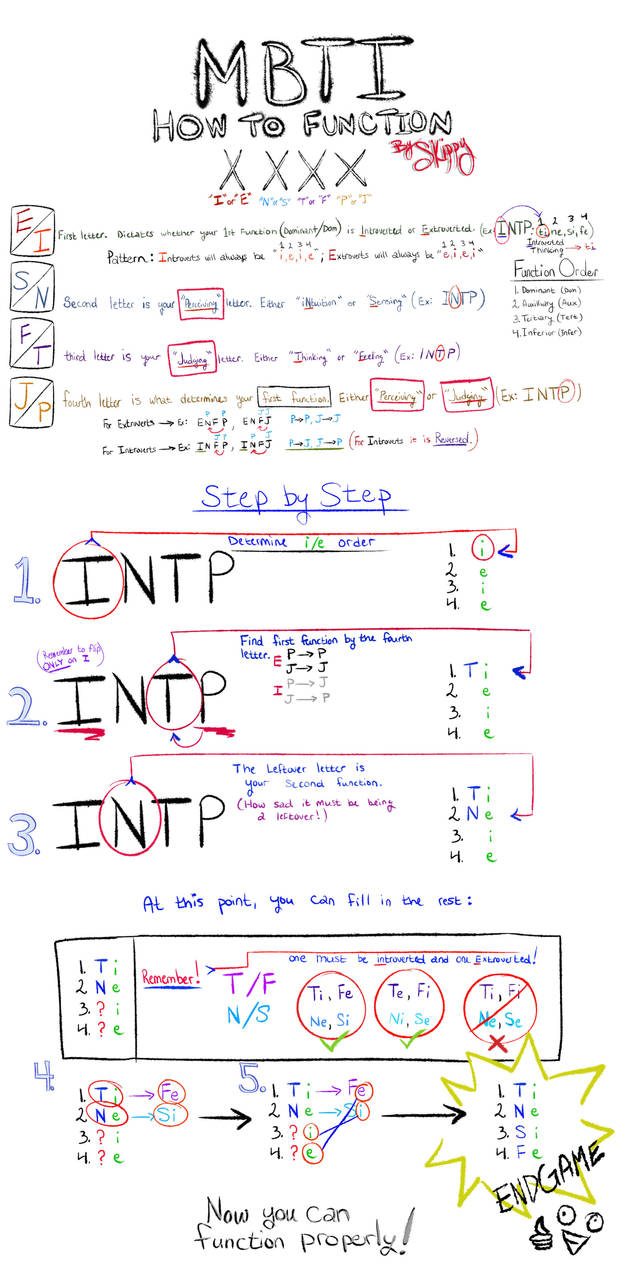 MBTI
HOW TO FUNCTION
By Skippy
X X X X
"I" or "E" "N" or "S" "T" or "F" "P" or "J"
E/I
First letter. Dictates whether your 1st Function (Dominant/Dom) is Introverted or Extroverted. (Ex: INTP: ti, ne, si, fe)
1 2 3 4
Introverted Thinking → ti
Pattern: Introverts will always be "i, e, i, e"; Extroverts will always be "e, i, e, i"
1 2 3 4
1 2 3 4
Function Order
1. Dominant (Dom)
2. Auxiliary (Aux)
3. Tertiary (Tert)
4. Inferior (Infer)
S/N
Second letter is your "Perceiving" letter. Either "iNtuition" or "Sensing" (Ex: INTP)
F/T
third letter is your "Judging" letter. Either "Thinking" or "Feeling" (Ex: INTP)
J/P
fourth letter is what determines your first function. Either "Perceiving" or "Judging" (Ex: INTP)
P P J J
For Extroverts → Ex: ENFP, ENFJ P→P, J→J
J P P J
For Introverts → Ex: INFP, INFJ P→J, J→P (For Introverts it is Reversed.)
Step by Step
Determine i/e order
1. INTP
1. i
2 e
3. i
4. e
(Remember to flip ONLY on I)
Find first function by the fourth letter.
E P → P
J → J
I P → J
J → P
2. INTP
1. Ti
2 e
3. i
4. e
The Leftover letter is
your Second function.
(How sad it must be being
a leftover!)
3. INTP
1. Ti
2 Ne
3. i
4. e
At this point, you can fill in the rest:
1. Ti
2 Ne
3. ? i
4. ? e
Remember!
one must be introverted and one Extroverted!
T/F
N/S
Ti, Fe
Ne, Si
Te, Fi
Ni, Se
Ti, Fi
Ne, Se
4.
1. Ti → Fe
2 Ne → Si
3. ? i
4. ? e
5.
1. Ti → Fe
2 Ne → Si
3. ? i
4. ? e
1. Ti
2. Ne
3. Si
4. Fe
ENDGAME
Now you can
function properly!